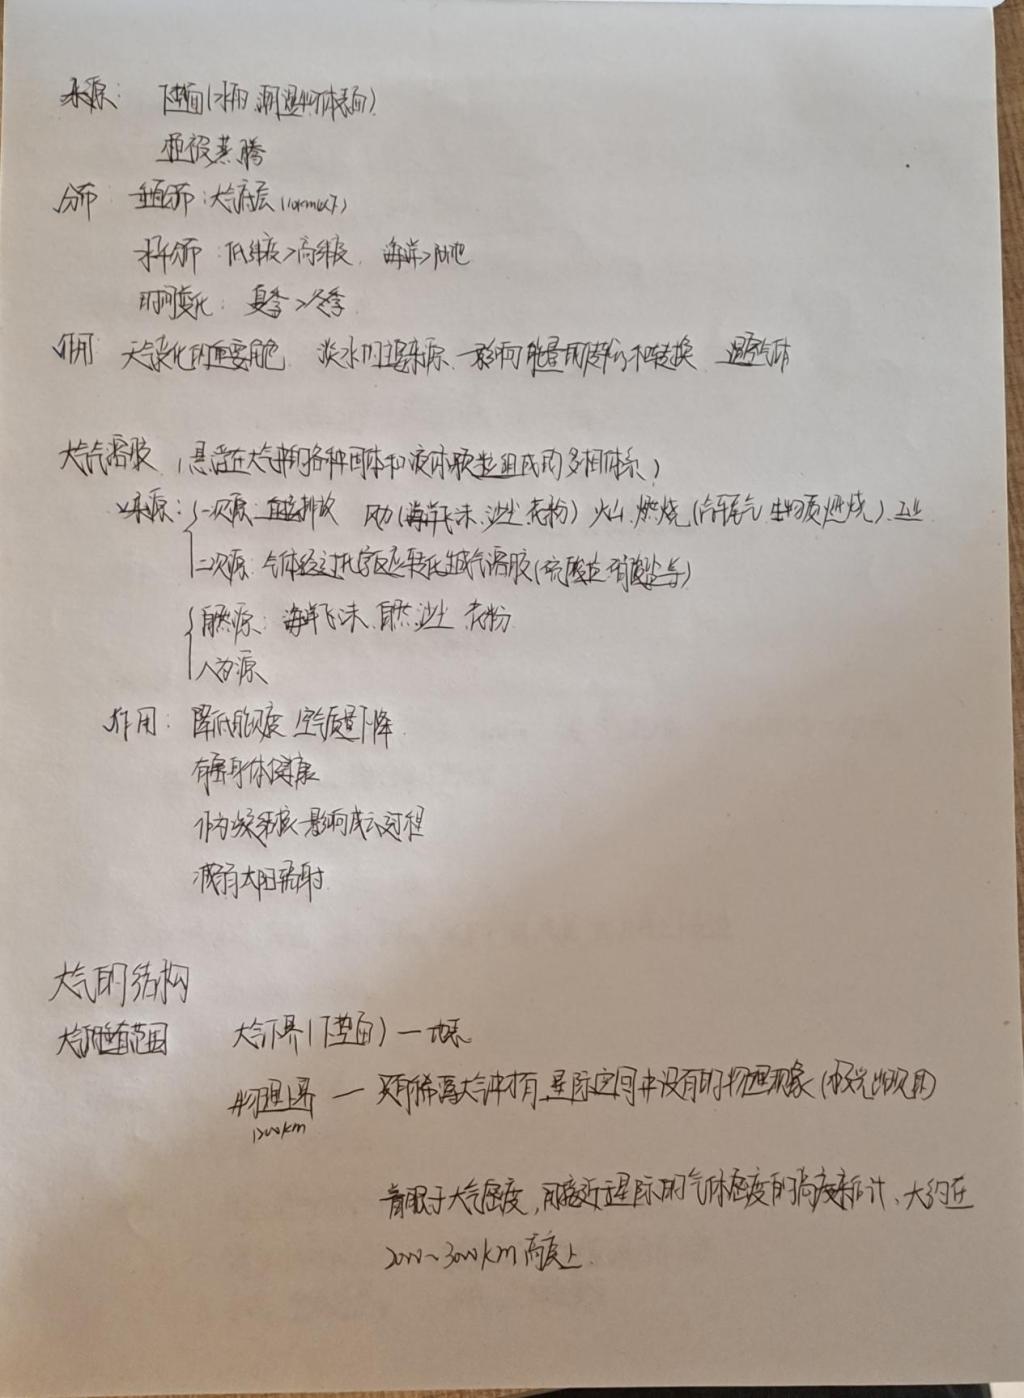 来源: 下垫面(水面 潮湿物体表面)
植被蒸腾
分布 垂直分布:大气底层(10km以下)
水平分布:低纬度>高纬度 海岸>内地
时间变化:夏季>冬季
作用 天气变化的重要角色 淡水的主要来源 影响能量的转移和转换 温室气体
大气气溶胶 (悬浮在大气中的各种固体和液体颗粒组成的多相体系)
来源: 一次源:直接排放 风力(海洋飞沫 沙尘 花粉) 火山 燃烧(汽车尾气 生物质燃烧) 工业
二次源:气体经过化学反应转化生成气溶胶(硫酸盐 硝酸盐等)
自然源:海洋飞沫 自然沙尘 花粉
人为源
作用: 降低能见度 空气质量下降
有害身体健康
作为凝结核 影响成云过程
减弱太阳辐射
大气的结构
大气垂直范围 大气下界(下垫面)一地表
物理上界 — 只有稀薄大气中才有,星际空间中没有的物理现象(极光出现的)
1200km
着眼于大气密度,用接近于星际的气体密度的高度来估计、大约在
2000~3000km高度上